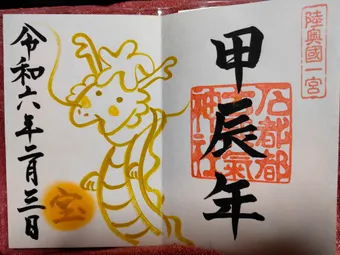 陸奥國一宮
甲辰年
石都都
古和氣
神社
令和六年二月三日
宝